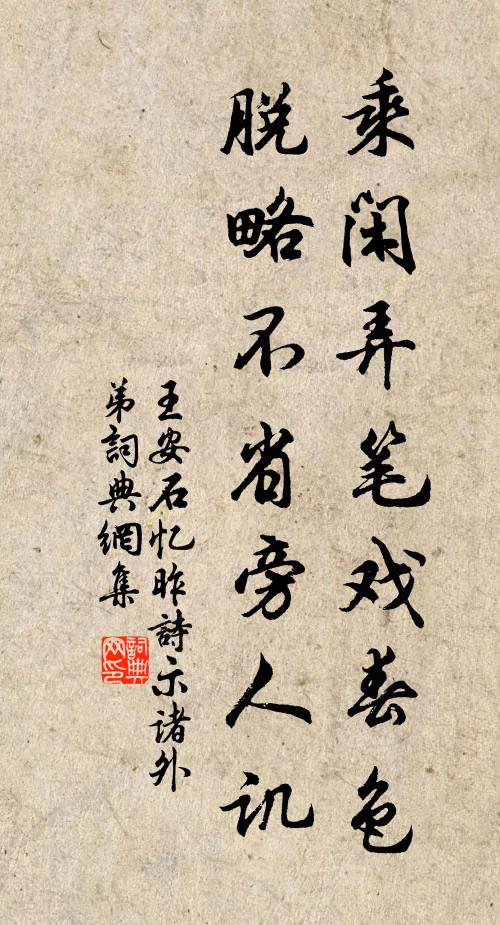 乘闲弄笔戏春色
脱略不省旁人讥
王安石忆昨詩示诸外
弟詞典網集
詞典
网印